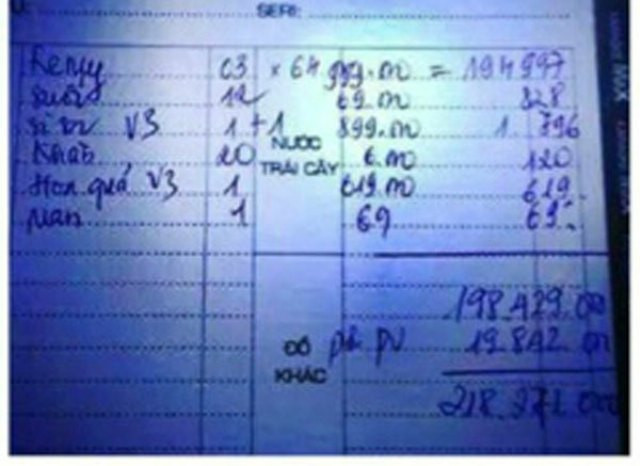 SERI:
Remy 03 × 64.999.00 = 194 997
suối 12 69.00 828
V3 1+1 899.00 1.796
NƯỚC
TRÁI CÂY
Khăn 20 6.00 120
Hoa quả V3 1 619.00 619
1 69 69
198.429.000
ĐỒ KHÁC
phí PV 19.842.00
218.271.000